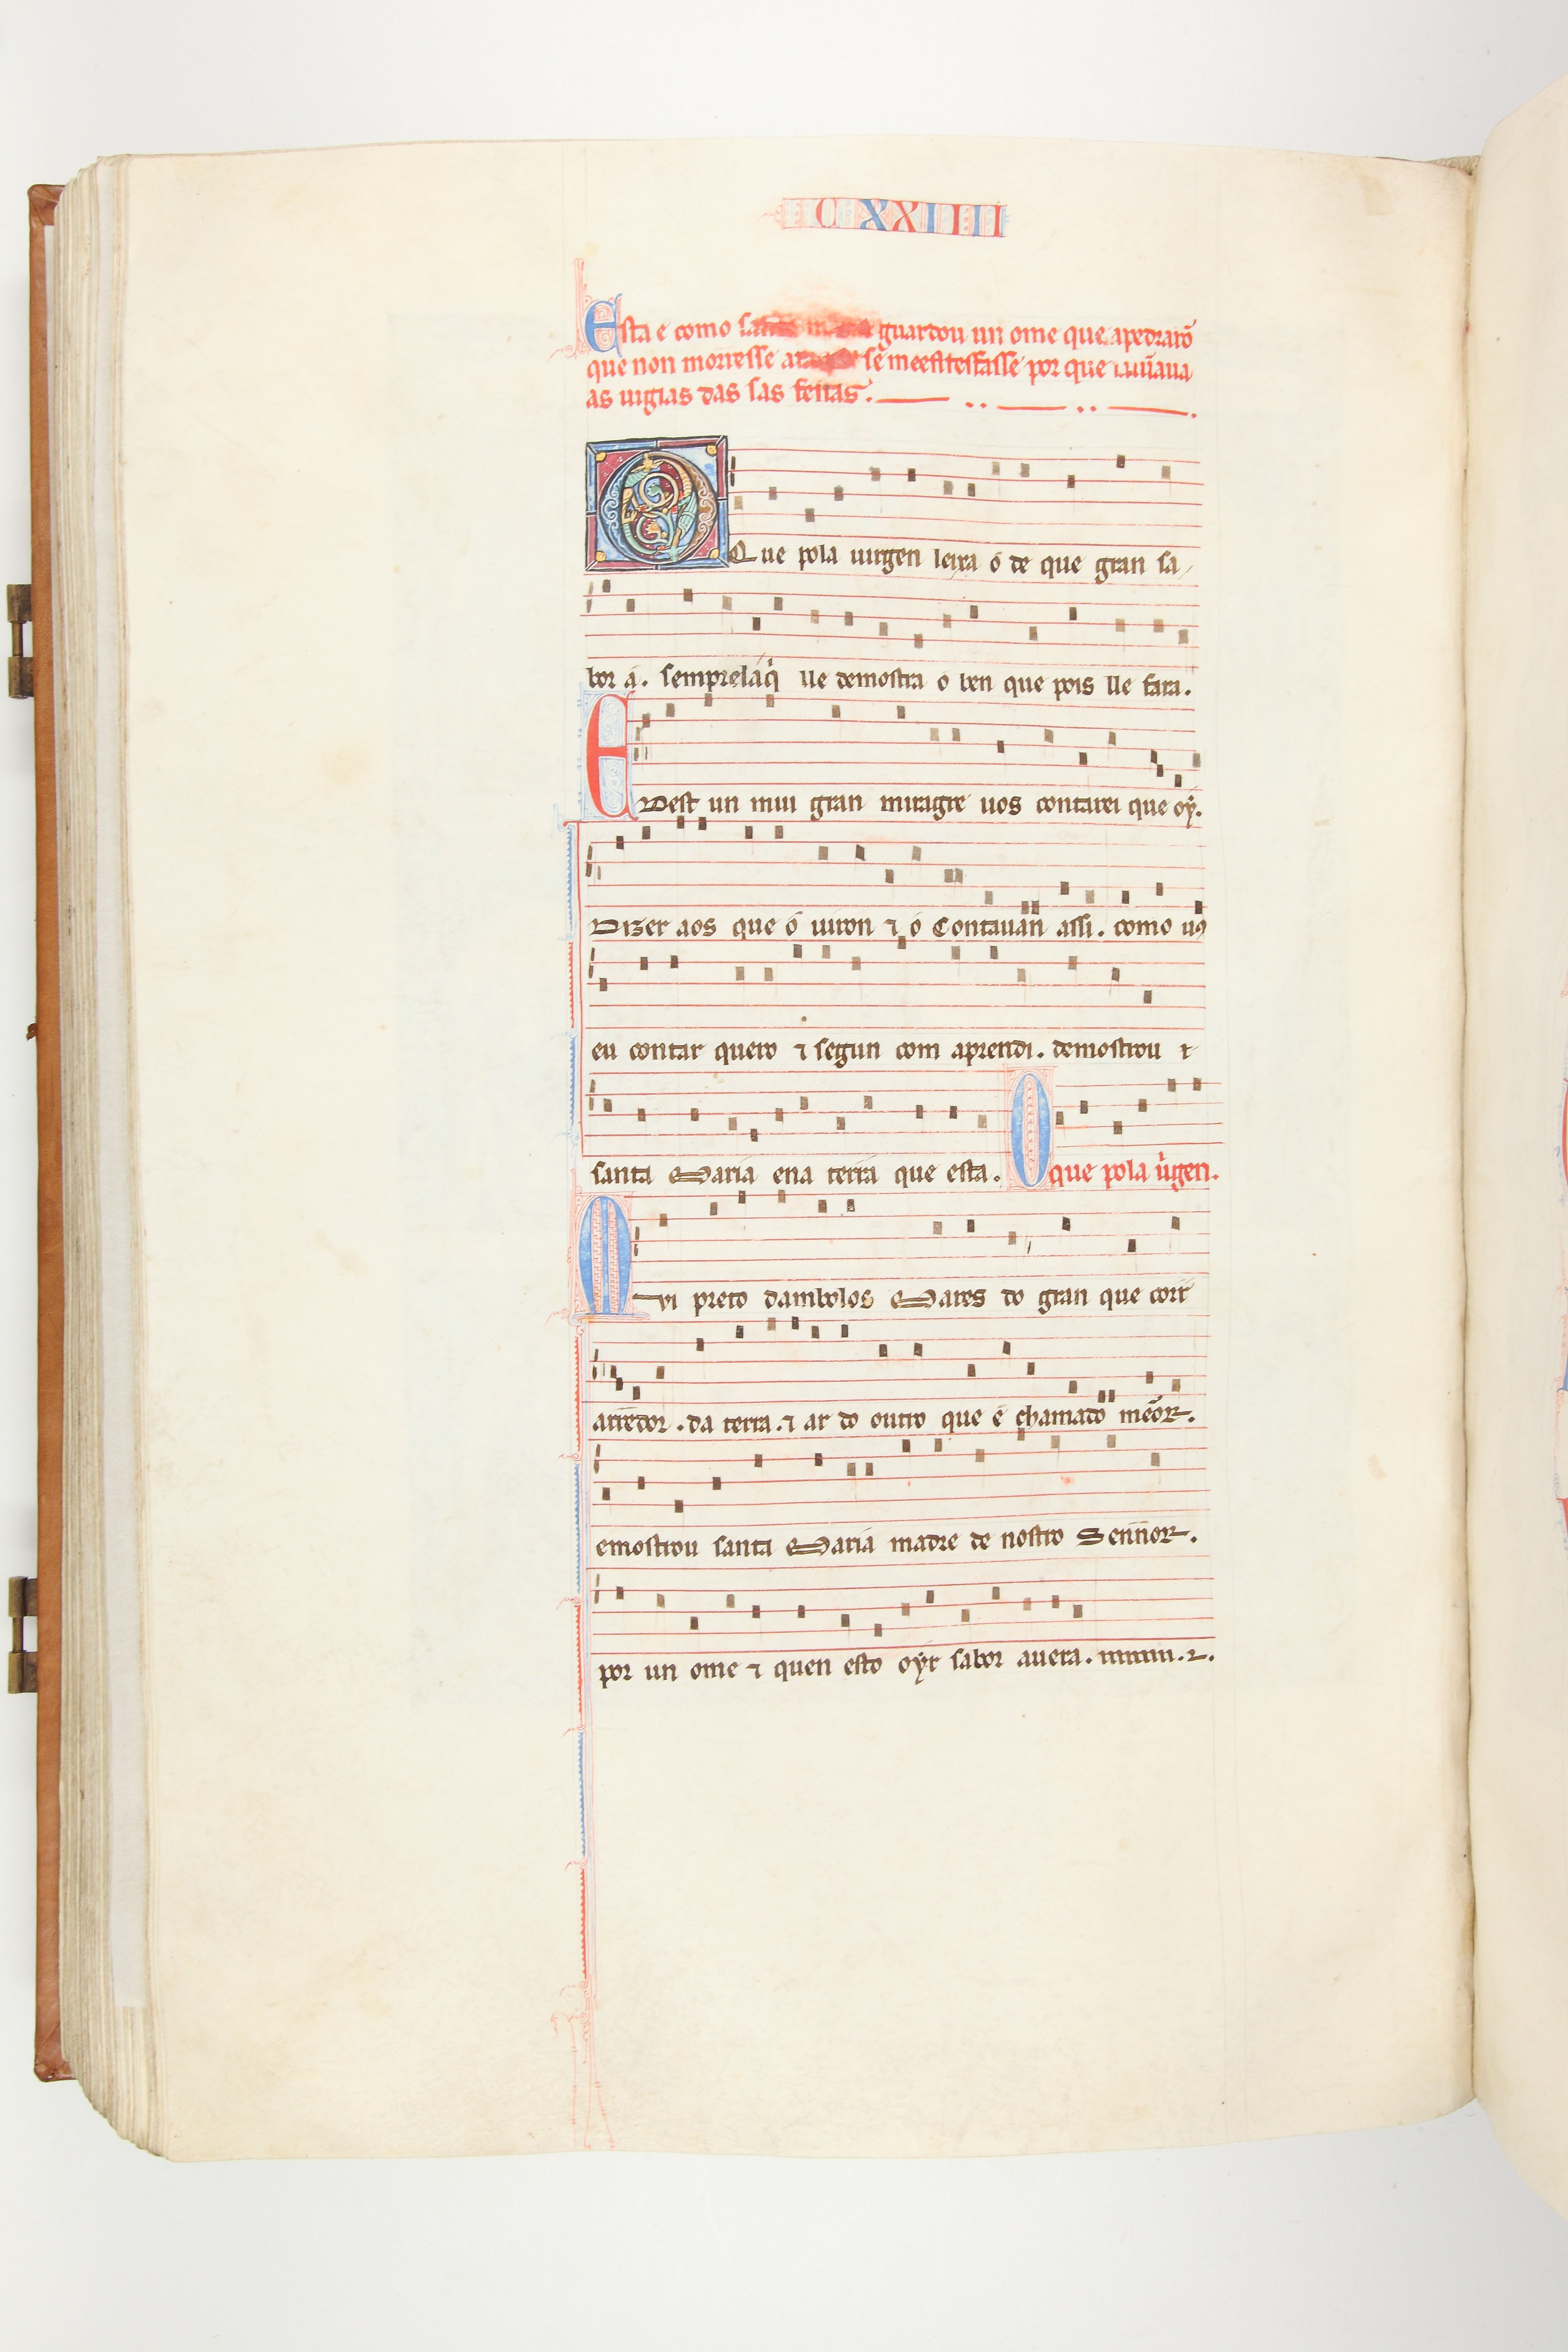 CXXIIII
Esta e como santa maria guardou un ome que apedrarõ
que non morresse ata que se meefestasse por que iaiũaua
as uigias das sas festas.
O Que pola uirgen leixa ó de que gran sa
bor á. sempreláq̇ lle demostra o ben que pois lle fara.
E Dest un mui gran miragre uos contarei que oý.
Dizer aos que ó uiron ⁊ ó Contauan assi. como uꝯ
eu contar quero ⁊ segun com aprendi. demostrou ⁊
santa Maria ena terra que esta. O que pola ũgen.
Mui preto dambolos Mares do gran que corr
arredor. da terra. ⁊ ar do outro que é chamado mẽor.
emostrou santa Maria madre de nostro Sennor.
por un ome ⁊ quen esto oýr sabor auera.